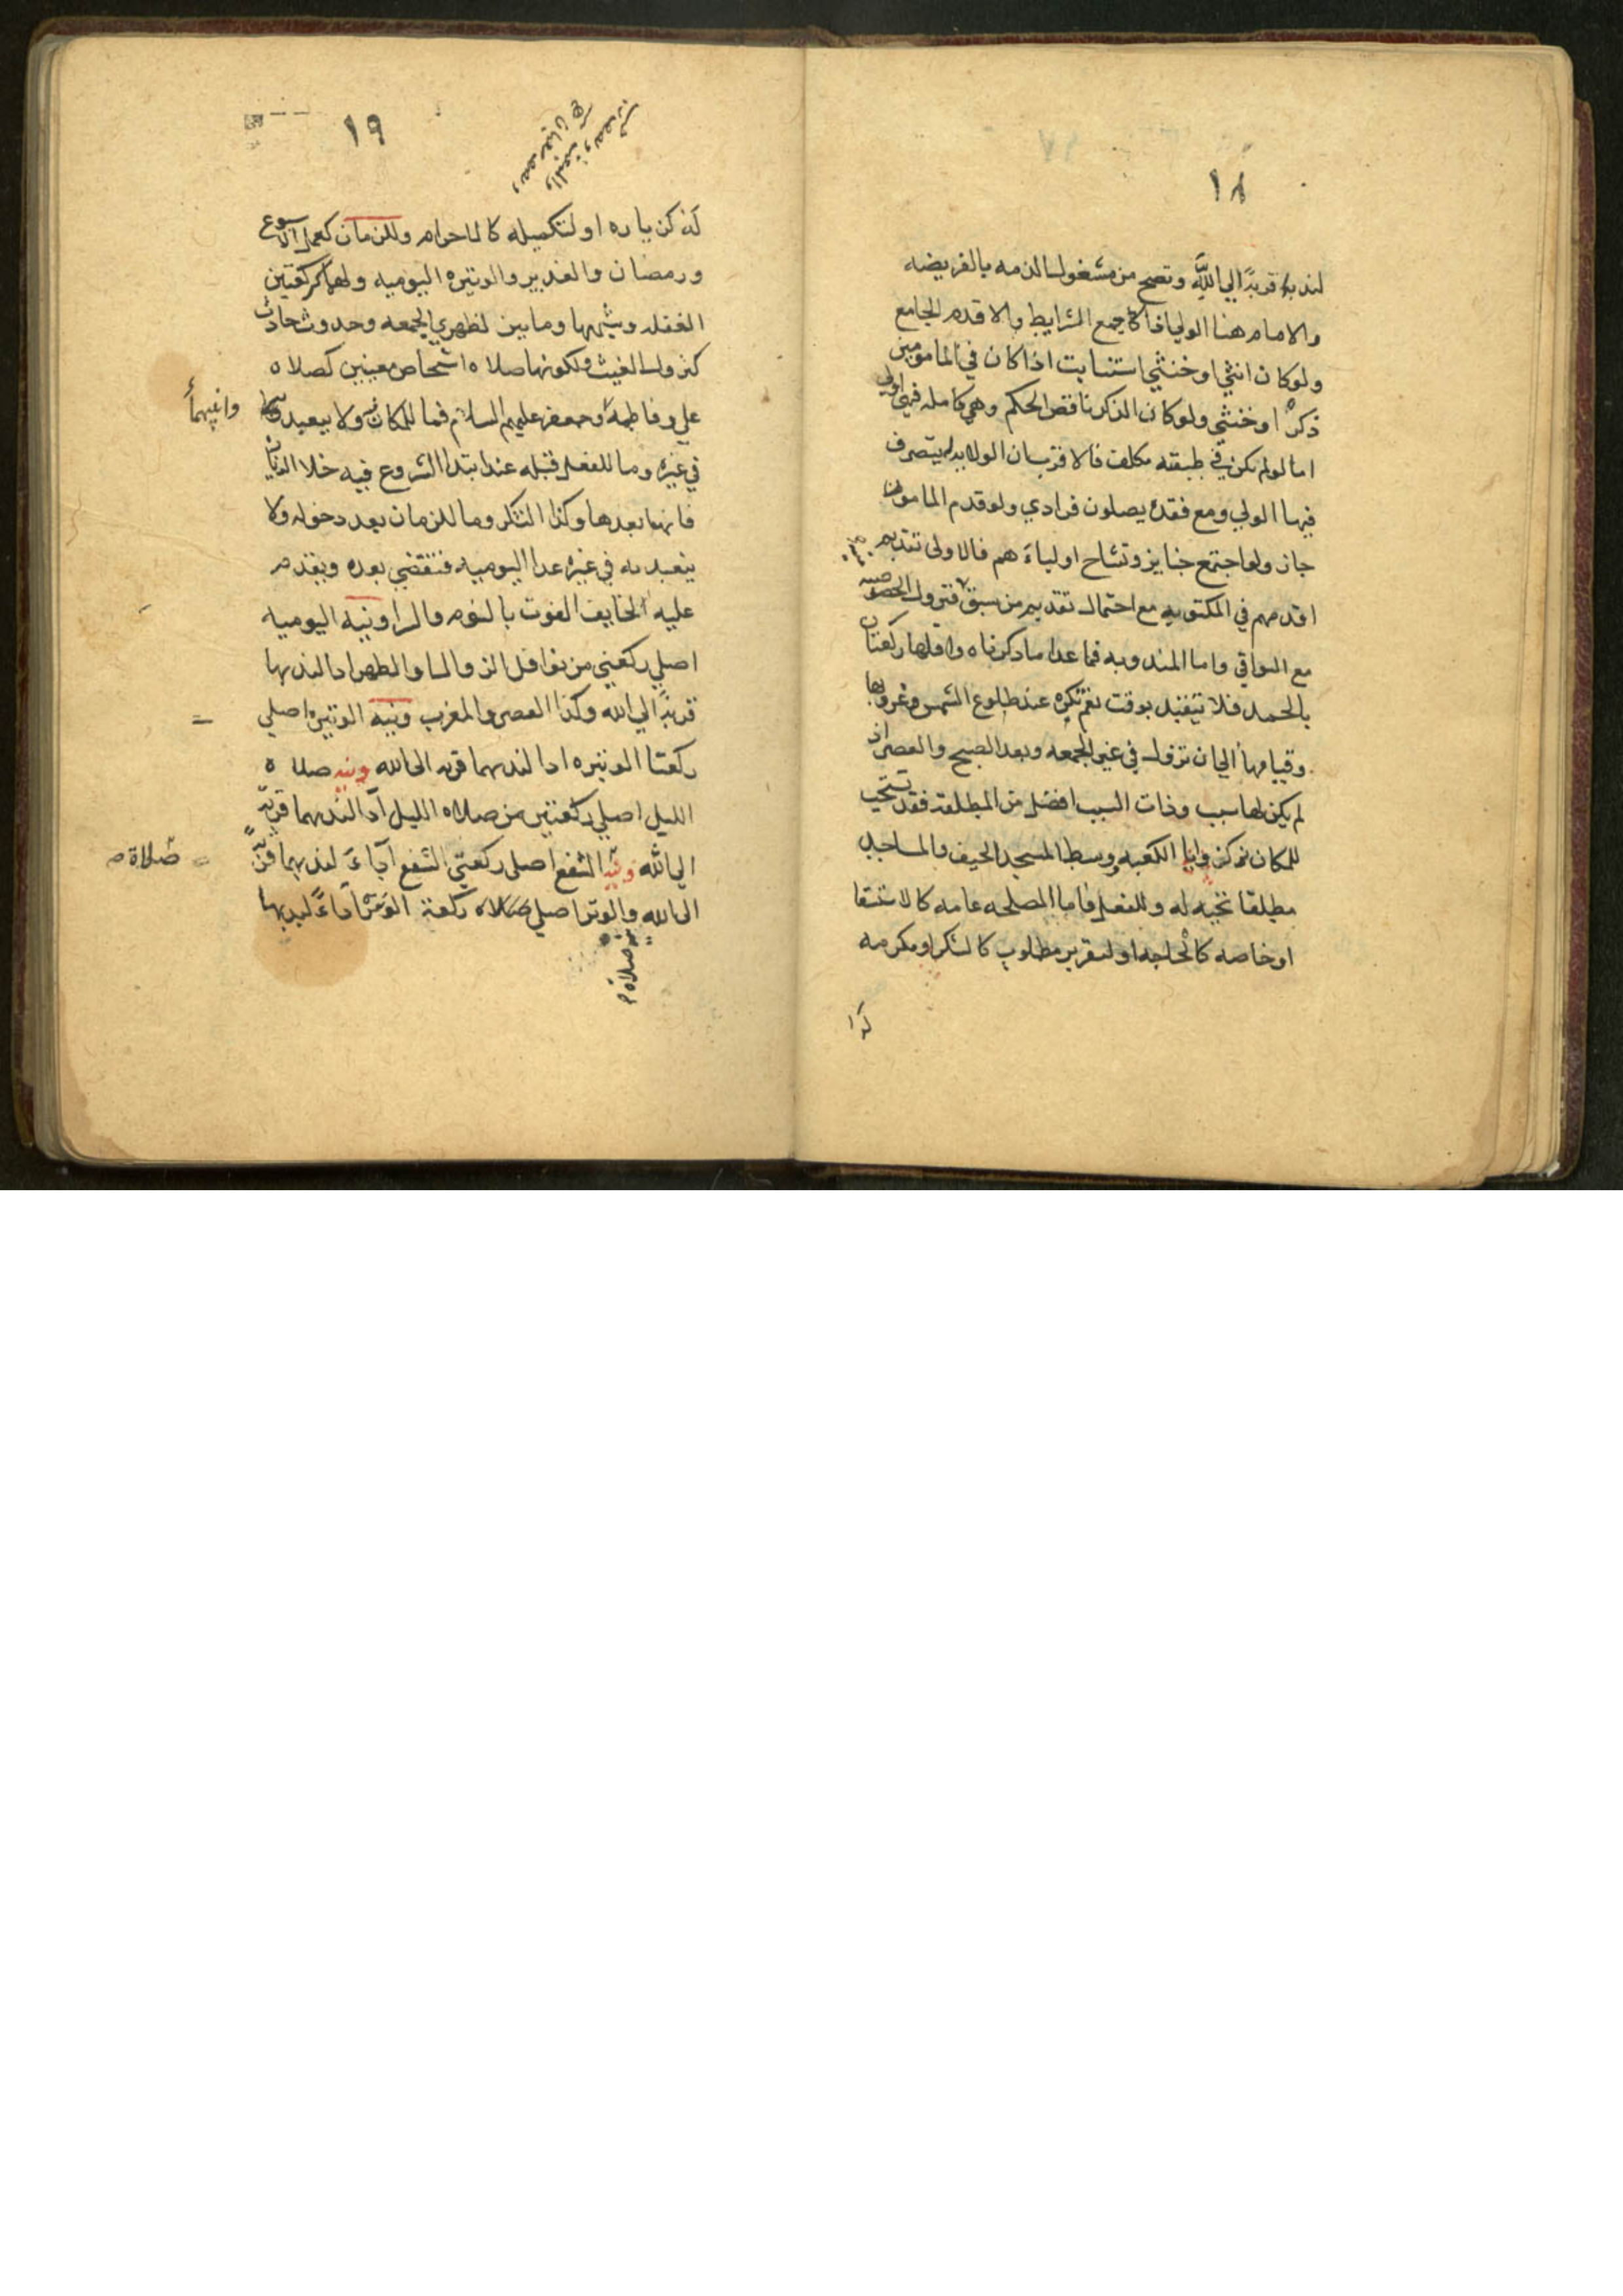 ١٨
لندبه قربةً الي اللَّه وتصح من مشغول الذمه بالفريضه
والامام هنا الولي اذا جمع الشرايط والا قدم الجامع
ولو كان انثي او خنثي استنابت اذا كان في المامومين
ذكرٌ او خنثي ولو كان الذكر ناقص الحكم وهي كامله فهي اولي
اما لو لم يكن في طبقته مكلف فالاقرب ان الولايه يتصرف
فيها الولي ومع فقده يصلون فرادي ولو قدم المامومون
جاز ولو اجتمع جنايز وتشاح اولياءَ هم فالاولى تقديم
اقدمهم في المكتوبه مع احتمال تقديم من سبق
مع البواقي واما المندوبه فما عدا ما ذكرناه واقلها ركعتان
بالحمد فلا تتقيد بوقت نعم تكره عند طلوع الشمس وغروبها
وقيامها الي ان تزول في غير الجمعه وبعد الصبح والعصر اذ
لم يكن لها سبب وذات السبب افضل من المطلقة فقد تستحب
للمكان الكعبه ووسط المسجد الخيف والمساجد
مطلقا تحيه له وللفعل فاما المصلحه عامه كالاستسقا
او خاصه كالحاجه او لتقرير مطلوب كالشكر او مكرمه
كذا
١٩
كزياره او لتكميله كالاحرام وللزمان كعمل الاسبوع
ورمضان والغدير والوتيره اليوميه ولهما كركعتين
الغفله وشبهها وما بين لظهري الجمعه وحدوث حادث
كنزول الغيث ولكونها صلاه اشخاص معينين كصلاه
علي وفاطمةَ وجعفر عليهم السلام فما للمكان ولا يتعبد
وانيهما
في غيره وما للفعل قبله عند ابتدا الشروع فيه خلا
فانها بعدها وكذا الشكر وما للزمان بعد دخوله ولا
يتعبد به في غيره عدا اليوميه فتقضي بعده ويقدم
عليه الخايف الفوت بالنوم والراونيه اليوميه
اصلي ركعتي من نوافل الزوال والظهر ادا لندبها
قربةً الي الله وكذا العصر والمغرب ونيه الوتيره اصلي
ركعتا الوتيره ادا لندبهما قربه الي الله ونيه صلا ه
الليل اصلي ركعتين من صلاه الليل اداَ لندبهما قربةً
الي الله ونيّه الشفع اصلي ركعتي الشفع اداءَ لندبهما قربةً
صلاة م
الي الله والوتر اصلي صلاه ركعة الوتر اداءً لندبها
صلاة م